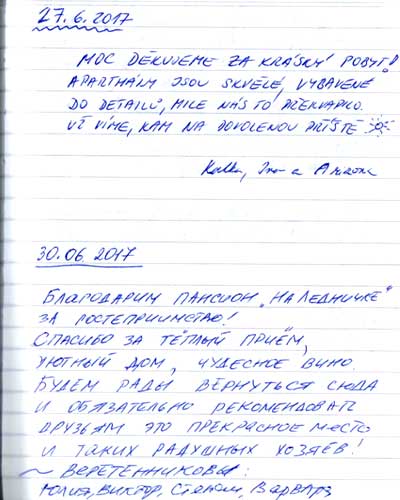 27.6.2017
MOC DĚKUJEME ZA KRÁSNÝ POBYT!
APARTMÁNY JSOU SKVĚLÉ, VYBAVENÉ
DO DETAILŮ, MILE NÁS TO PŘEKVAPILO.
UŽ VÍME, KAM NA DOVOLENOU PŘÍŠTĚ
Ivan a
30.06 2017
БЛАГОДАРИМ ПАНСИОН „НА ЛЕДНИЧКЕ"
ЗА ГОСТЕПРИИМСТВО!
СПАСИБО ЗА ТЁПЛЫЙ ПРИЁМ,
УЮТНЫЙ ДОМ, ЧУДЕСНОЕ ВИНО.
БУДЕМ РАДЫ ВЕРНУТЬСЯ СЮДА
И ОБЯЗАТЕЛЬНО РЕКОМЕНДОВАТЬ
ДРУЗЬЯМ ЭТО ПРЕКРАСНОЕ МЕСТО
И ТАКИХ РАДУШНЫХ ХОЗЯЕВ!
~ ВЕРЕТЕННИКОВЫ:
Юлия, Виктор, Степан, Варвара